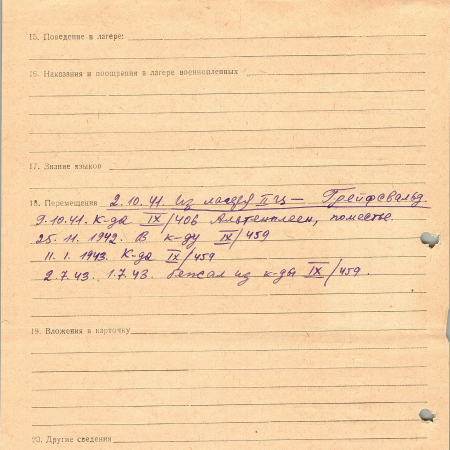 15. Поведение в лагере:
16. Наказания и поощрения в лагере военнопленных
17. Знание языков
18. Перемещения 2.10.41. Из лагеря II Ц — Грейфсвальд.
9.10.41. К-да IX/406 Альтенплеен, поместье.
25.11.1942. В к-ду IX/459
11.1.1943. К-да IX/459
2.7.43. 1.7.43. бежал из к-ды IX/459.
19. Вложения в карточку
20. Другие сведения